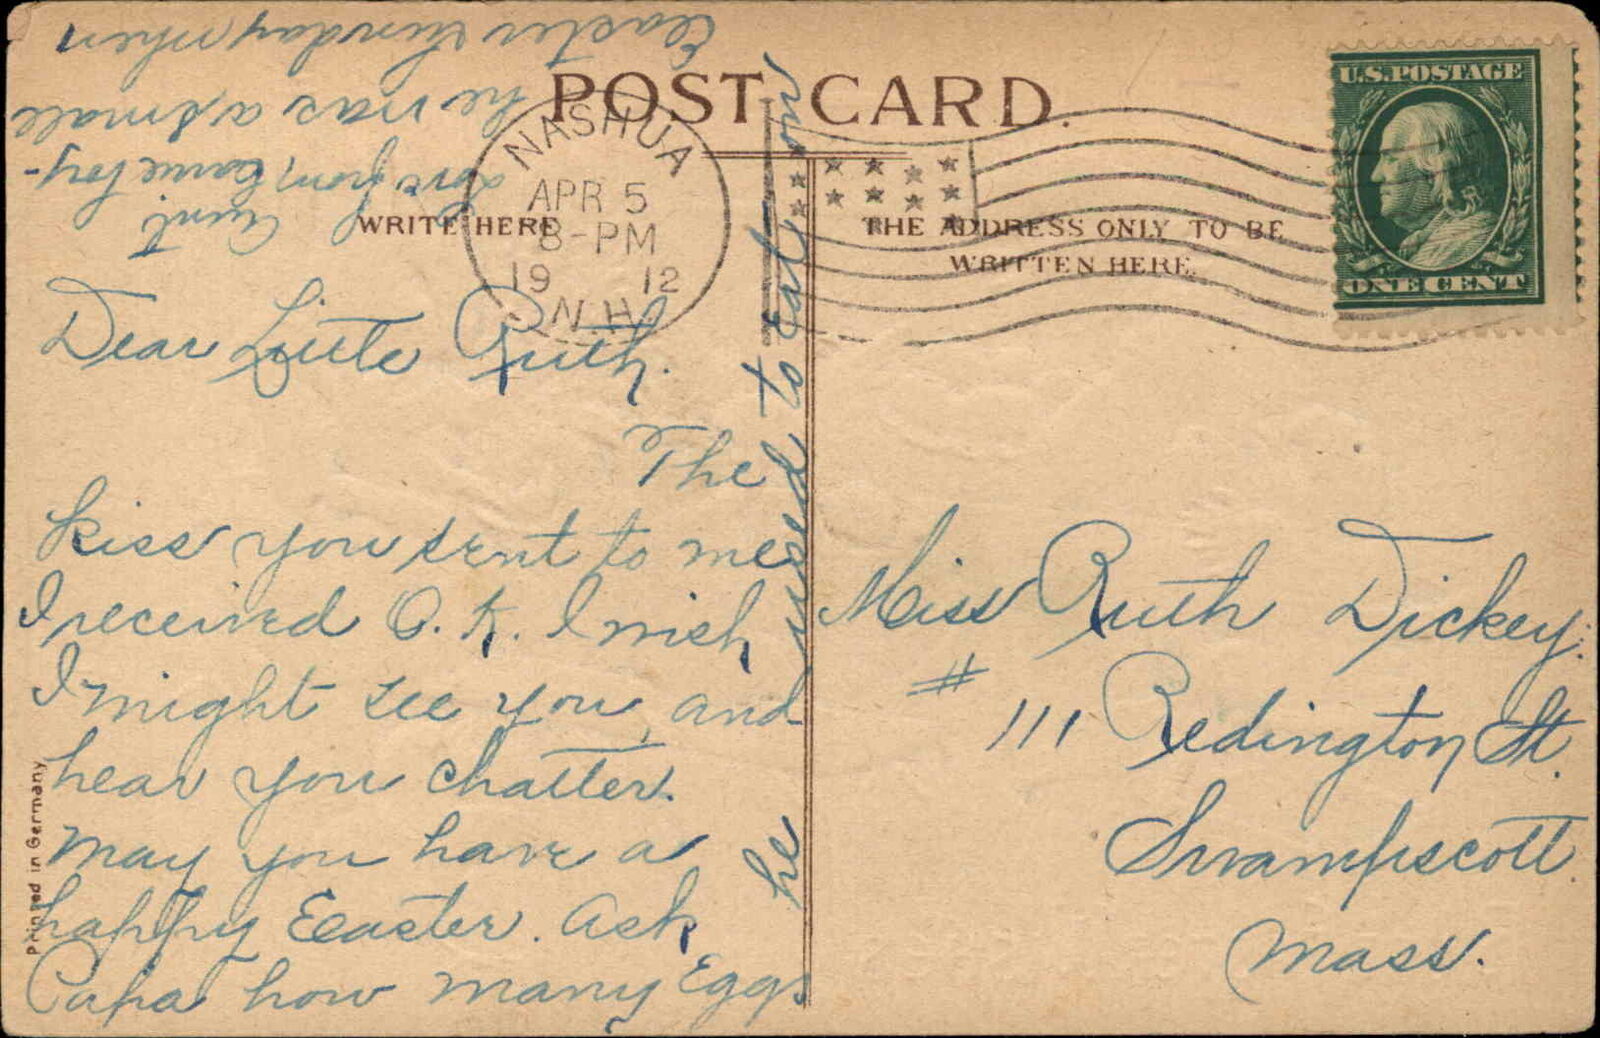 POST CARD.
WRITE HERE
THE ADDRESS ONLY TO BE
WRITTEN HERE.
NASHUA
APR 5
8-PM
19 12
N.H.
U.S. POSTAGE
ONE CENT
Dear Little Ruth.
The
kiss you sent to me
I received O.K. I wish
I might see you, and
hear you chatter.
May you have a
happy Easter. Ask
Papa how many Eggs
he used to eat on
Easter Sunday when
he was a small
boy-
Love from
Aunt
Miss Ruth Dickey.
# 111 Redington St.
Swampscott.
Mass.
Printed in Germany